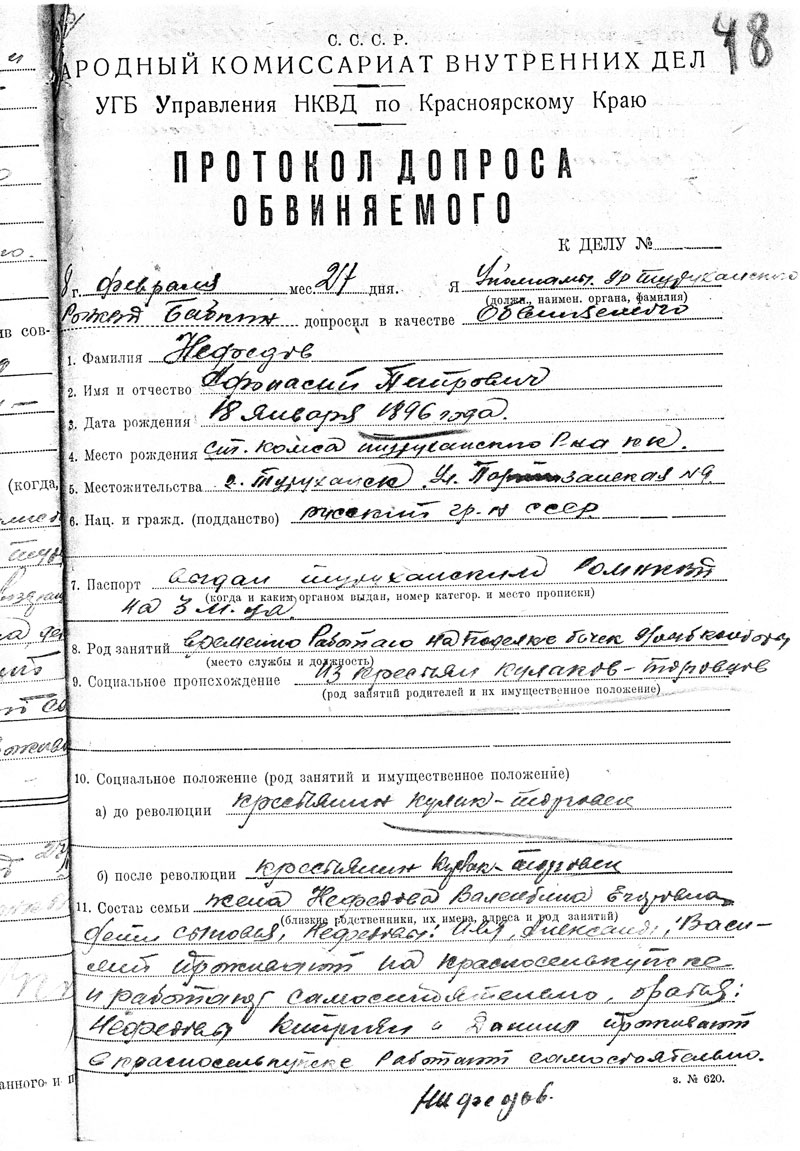 48
С. С. С. Р.
АРОДНЫЙ КОМИССАРИАТ ВНУТРЕННИХ ДЕЛ
УГБ Управления НКВД по Красноярскому Краю
ПРОТОКОЛ ДОПРОСА
ОБВИНЯЕМОГО
К ДЕЛУ №
г. февраля мес. 27 дня. Я Туруханского
(должн., наимен. органа, фамилия)
Бабкин допросил в качестве Обвиняемого
1. Фамилия Нефедов
2. Имя и отчество Афонасий Петрович
3. Дата рождения 18 января 1896 года.
4. Место рождения ст. Комса Туруханского Р-на КК.
5. Местожительства с. Туруханск ул. Партизанская №9
6. Нац. и гражд. (подданство) русский гр-н СССР
7. Паспорт выдан Туруханским
(когда и каким органом выдан, номер категор. и место прописки)
на 3 м-ца.
8. Род занятий временно работаю на поделке бочек
(место службы и должность)
9. Социальное происхождение из крестьян кулаков-торговцов
(род занятий родителей и их имущественное положение)
10. Социальное положение (род занятий и имущественное положение)
а) до революции крестьянин кулак-торговец
б) после революции крестьянин кулак-торговец
11. Состав семьи жена Нефедова Валентина Егоровна
(близкие родственники, их имена, адреса и род занятий)
дети сыновья, Нефедовы: Илья, Александр, Васи-
лий проживают на Красноселькупске
и работают самостоятельно, братья:
Нефедовы Киприян и Даниил проживают
в Красноселькупске работают самостоятельно.
з. № 620.
Нифедов.
ив сов-
(когда,
анного и п